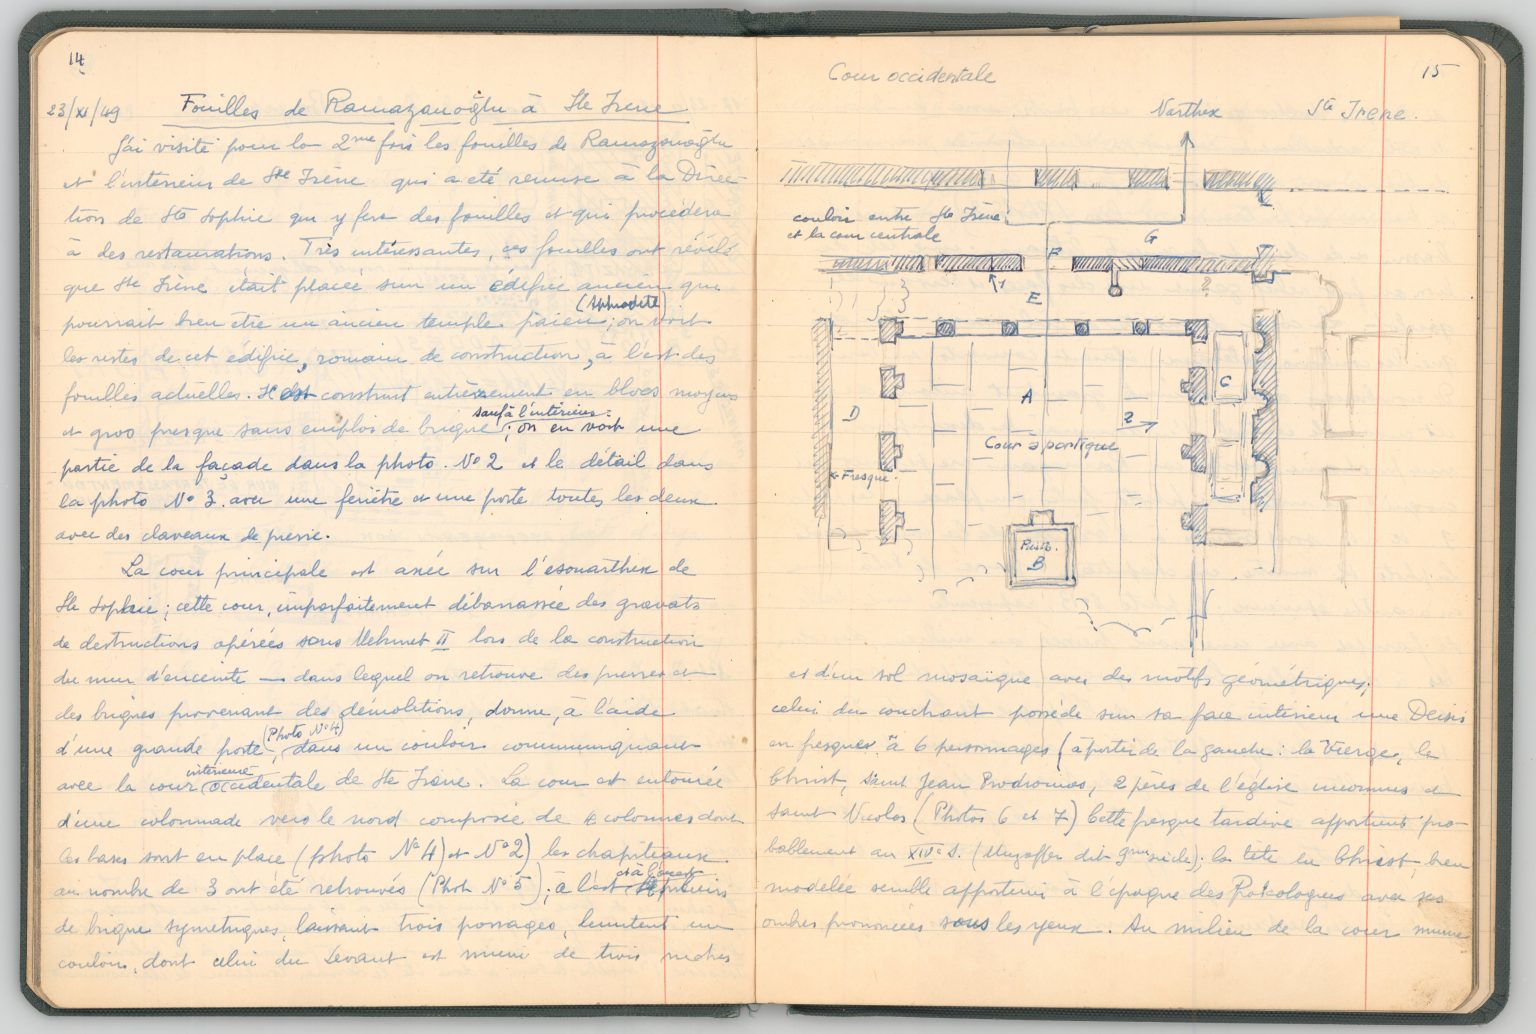 14
23/XI/49 Fouilles de Ramazanoğlu à Ste Irène
J'ai visité pour la 2me fois les fouilles de Ramazanoğlu
et l'intérieur de Ste Irène qui a été remise à la Direc-
tion de Ste Sophie qui y fera des fouilles et qui procédera
à des restaurations. Très intéressantes, ces fouilles ont révélé
que Ste Irène était placée sur un édifice ancien qui
pourrait bien être un ancien temple païen (Aphrodite); on voit
les restes de cet édifice, romain de construction, à l'est des
fouilles actuelles. Il est construit entièrement en blocs moyens
et gros presque sans emploi de brique sauf à l'intérieur; on en voit une
partie de la façade dans la photo. No 2 et le détail dans
la photo No 3. avec une fenêtre et une porte toutes les deux
avec des claveaux de pierre.
La cour principale est axée sur l'esonarthex de
Ste Sophie; cette cour, imparfaitement débarrassée des gravats
de destructions opérées sous Mehmet II lors de la construction
du mur d'enceinte — dans lequel on retrouve des pierres et
des briques provenant des démolitions, donne, à l'aide
d'une grande porte (Photo No 4), dans un couloir communiquant
avec la cour intérieure occidentale de Ste Irène. La cour est entourée
d'une colonnade vers le nord composée de 4 colonnes dont
les bases sont en place (photo No 4) et No 2) les chapiteaux
au nombre de 3 ont été retrouvés (Phot. No 5); à l'est et à l'ouest piliers
de brique symétriques, laissant trois passages, limitent un
couloir, dont celui du Levant est muni de trois niches
15
Cour occidentale
Narthex
Ste Irène.
couloir entre Ste Irène
et la cour centrale
G
F
1
E
?
A
C
D
2
Cour à portique
Fresque
Puits.
B
et d'un sol mosaïque avec des motifs géométriques;
celui du couchant possède sur sa face intérieur une Deisis
en fresques à 6 personnages (à partir de la gauche: la Vierge, le
Christ, Saint Jean Prodromos, 2 pères de l'église inconnus et
Saint Nicolas (Photos 6 et 7) Cette fresque tardive appartient pro-
bablement au XIVe S. (Muzaffer dit siècle); la tête du Christ, bien
modelée semble appartenir à l'époque des Paléologues avec ses
ombres prononcées sous les yeux. Au milieu de la cour munie